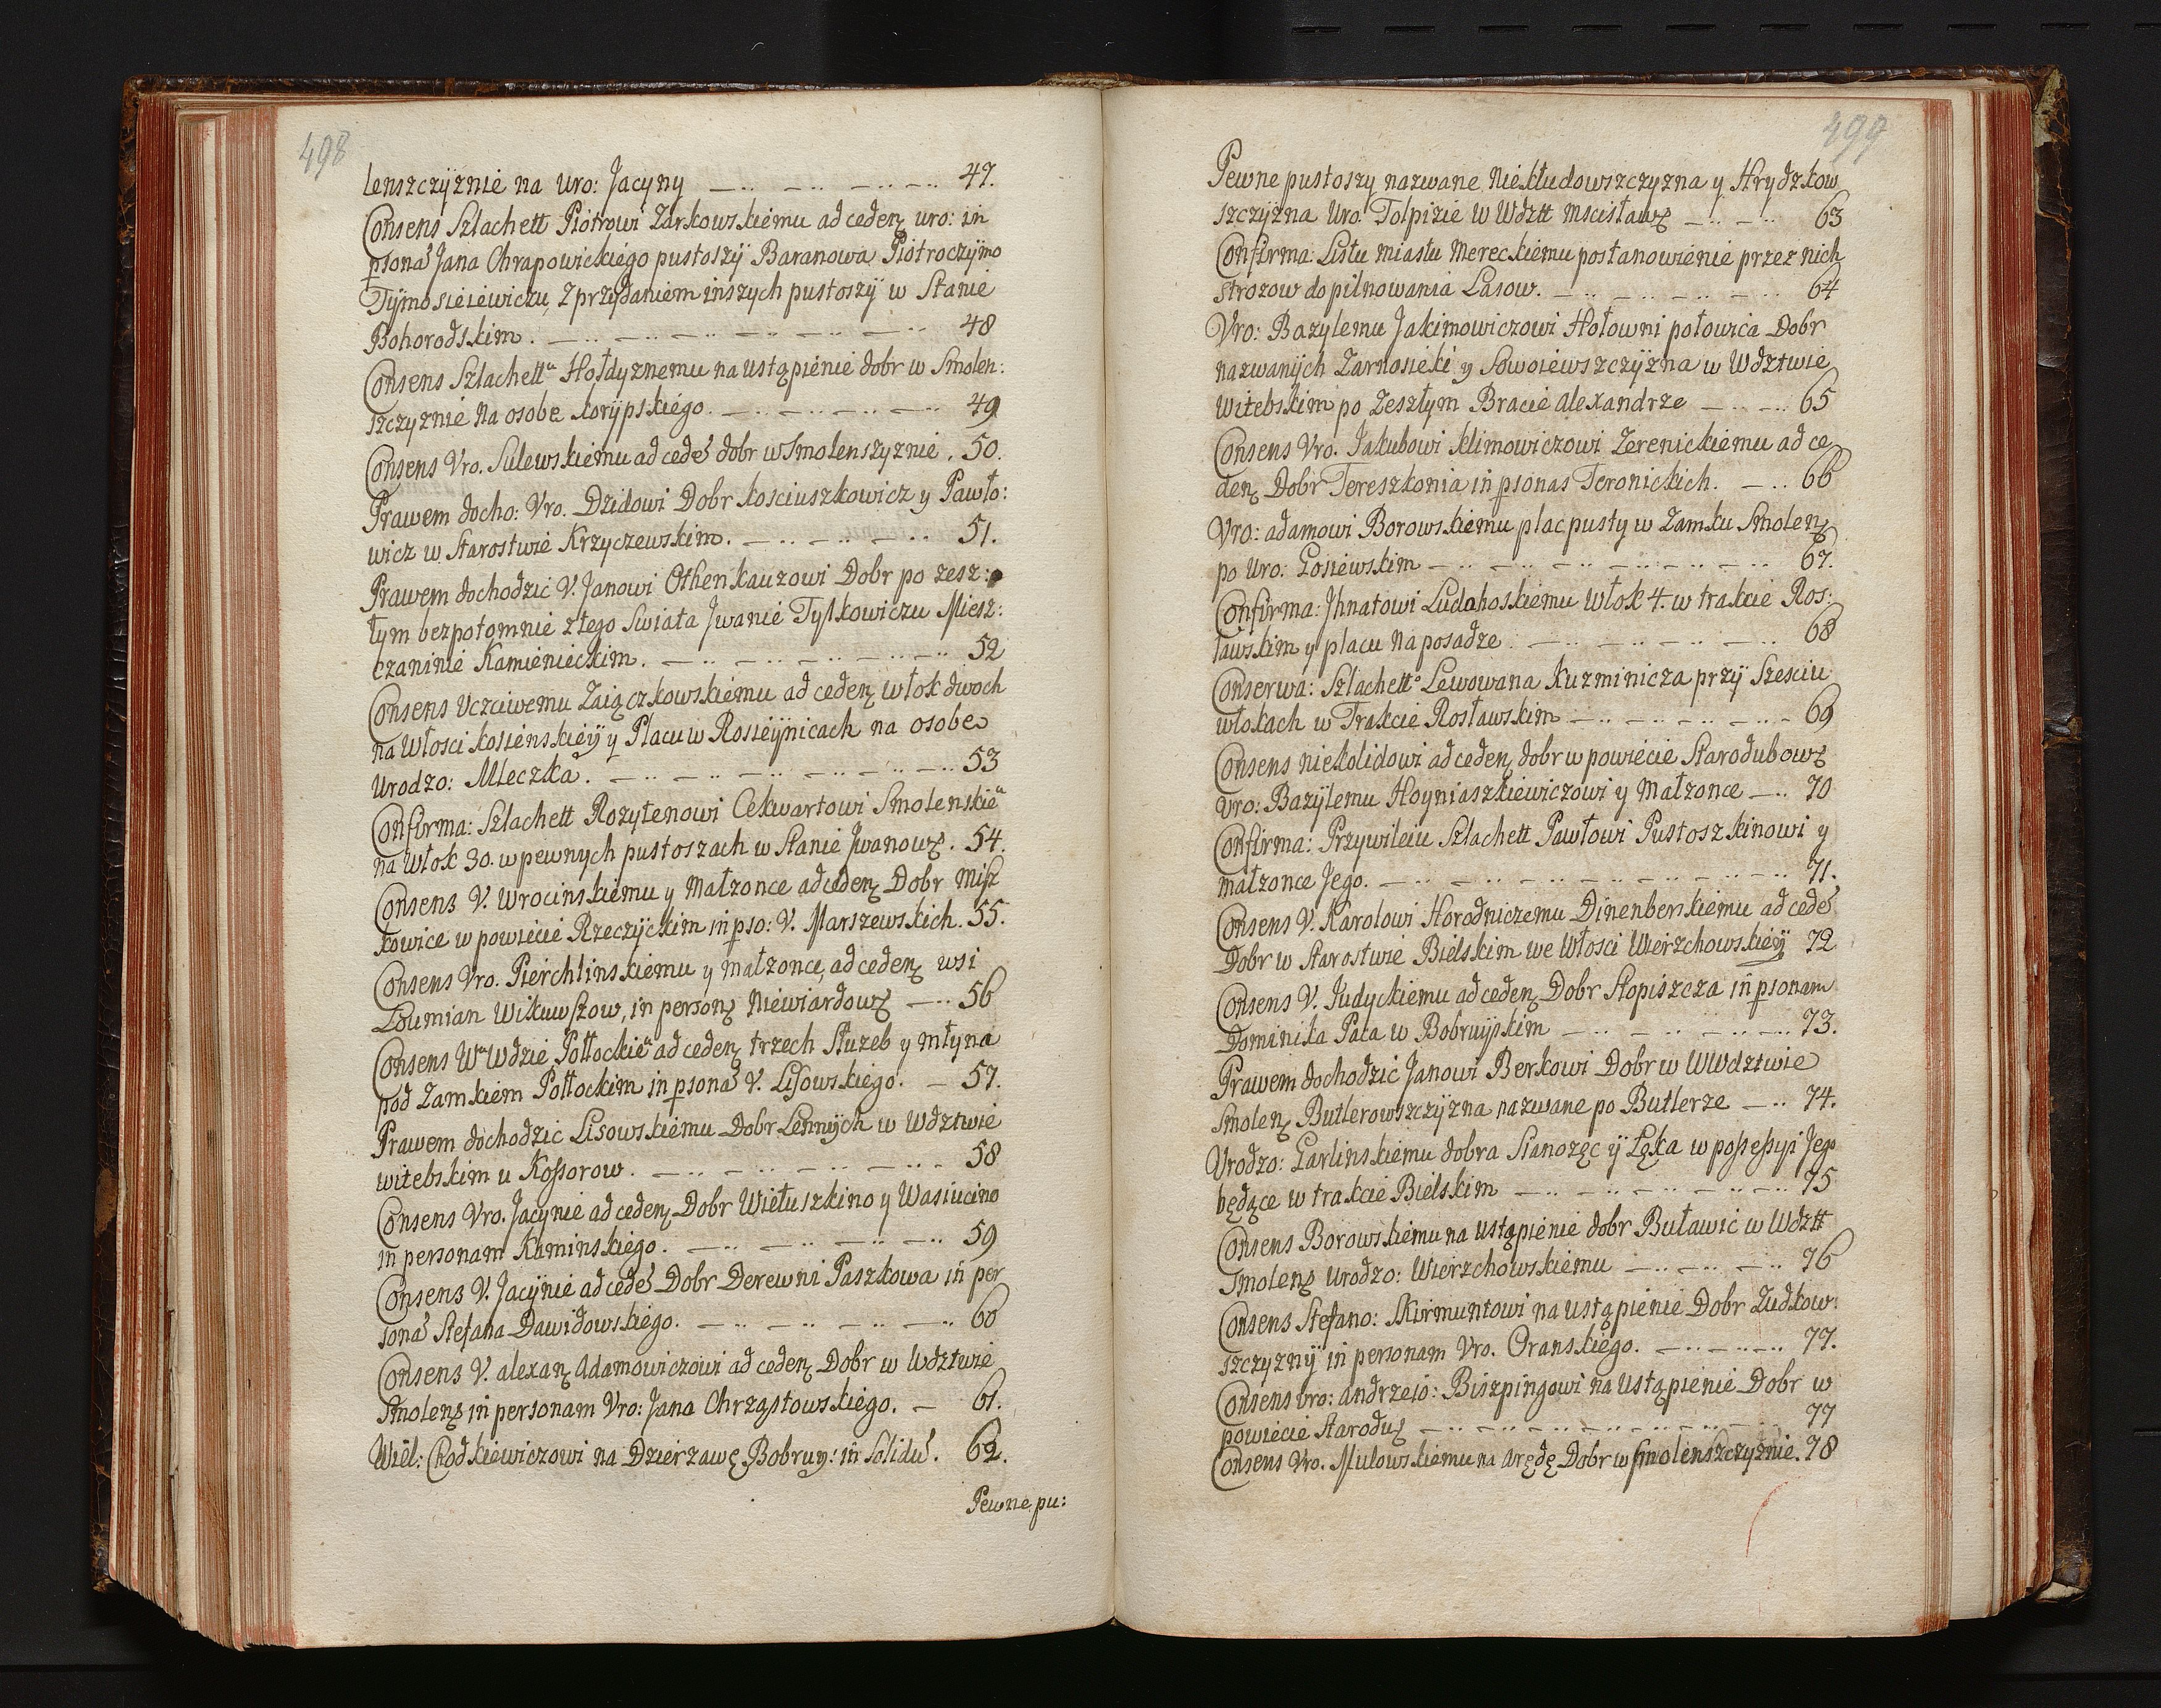 498
lenszczÿznie na Uro: Jacyny — .. — .. — .. — .. 47.
Consens Szlachett Piotrowi Zarkowskiemu ad ceden uro: in
psona Jana Chrapowickiego pustoszÿ Baranowa Piotroczÿmo
Tÿmosieiewiczu, z przydaniem inszych pustoszÿ w Stanie
Bohorodskim . — .. — .. — .. — .. — .. 48
Consens Szlachett Hołdyznemu na ustąpienie dobr w Smolen:
szczyznie Na osobe Korÿpskiego . — .. — .. — .. — .. 49
Consens Vro. Sulewskiemu ad cede dobr w Smolenszyznie . 50.
Prawem docho: Vro. Dzidowi Dobr Kosciuszkowicz y Pawło:
wicz w Starostwie Krzyczewskim . — .. — .. — .. 51.
Prawem dochodzic V. Janowi Othenkauzowi Dobr po zesz:
łym bezpotomnie z tego Swiata Jwanie Tyszkowiczu Miesz:
czaninie Kamienieckim . — .. — .. — .. — .. 52
Consens Uczciwemu Zaiączkowskiemu ad ceden włok dwoch
na Włosci Kosienskieÿ y Placu w Rosieÿnicach na osobe
Urodzo: Mleczka . — .. — .. — .. — .. — .. 53
Confirma: Szlachett Rozytenowi Cekwartowi Smolenskie
na Włok 30. w pewnych pustoszach w Stanie Jwanow . 54.
Consens V. Wrocinskiemu y Małzonce ad ceden Dobr Misz
kowice w powiecie Rzeczÿckim in pso: V. Marszewskich . 55.
Consens Vro. Pierchlinskiemu y małzonce, ad ceden wsi
Doumian Wikuwszow, in person Niewiardow — .. 56
Consens W Wdzie Połłockie ad ceden trzech Słuzeb y młyna
pod Zamkiem Połłockim in psona V. Lisowskiego . — 57.
Prawem dochodzic Lisowskiemu Dobr Lennÿch w Wdztwie
witebskim u Kossorow . — .. — .. — .. — .. 58
Consens Vro. Jacynie ad ceden Dobr Wiełuszkino y Wasiucino
in personam Kaminskiego . — .. — .. — .. — .. 59
Consens V. Jacÿnie ad cede Dobr Derewni Paszkowa in per
sona Stefana Dawidowskiego . — .. — .. — .. — .. 60
Consens V. alexan Adamowiczowi ad ceden Dobr w Wdztwie
Smolen in personam Vro: Jana Chrząstowskiego . — 61.
Wiel: Chodkiewiczowi na Dzierzawę Bobruy: in Solidu . 62.
Pewne pu:
499
Pewne pustoszy nazwane Niekłudowszczyzna y Hrydzkow
szczÿzna Uro. Tolpizie w Wdztt Mscisław — .. — .. 63
Confirma: Listu miastu Mereckiemu postanowienie przez nich
strozow do pilnowania Lasow . — .. — .. — .. — .. 64
Vro: Bazylemu Jakimowiczowi Hołowni połowica Dobr
nazwanÿch Zarnosieki y Sowoiewszczÿzna w Wdztwie
Witebskim po Zeszłym Bracie Alexandrze — .. — .. 65
Consens Vro. Jakubowi Klimowiczowi Zerenickiemu ad ce
den Dobr Tereszkonia in psonas Teronickich . — .. 66
Vro: adamowi Borowskiemu plac pusty w Zamku Smolen
po Uro: Gosiewskim — .. — .. — .. — .. — .. 67.
Confirma: Jhnatowi Ludohoskiemu Włok 4. w trakcie Ros:
ławskim y placu Na posadze . — .. — .. — .. — .. 68
Conserwa: Szlachett Lewowana Kuzminicza przÿ Szesciu
włokach w Trakcie Rosławskim — .. — .. — .. — 69
Consens Niekolidowi ad ceden dobr w powiecie Starodubow
Uro: Bazÿlemu Hoyniaszkiewiczowi y Małzonce — .. 70
Confirma: Przywileiu Szlachett Pawłowi Pustoszkinowi y
małzonce Jego . — .. — .. — .. — .. — .. — .. 71.
Consens V. Karolowi Horodniczemu Dinenberskiemu ad cede
Dobr w Starostwie Bielskim we Włosci Wierzchowskiéÿ 72
Consens V. Judyckiemu ad ceden Dobr Stopiszcza in psonam
Dominika Paca w Bobruÿskim — .. — .. — .. — .. 73.
Prawem dochodzic Janowi Berkowi Dobr w WWdztwie
Smolen Butlerowszczÿzna nazwane po Butlerze — .. 74.
Urodzo: Garlinskiemu dobra Stanozęc ÿ Łęka w possessyi Jego
będące w trakcie Bielskim — .. — .. — .. — .. 75
Consens Borowskiemu na ustąpienie dobr Buławic w Wdztt
Smolen Urodzo: Wierzchowskiemu — .. — .. — .. 76
Consens Stefano: Skirmuntowi na ustąpienie Dobr Ludkow:
szczyznÿ in personam Vro. Oranskiego . — .. — .. 77.
Consens Uro: andrzeio: Biszpingowi na Ustąpienie Dobr w
powiecie Starodu — .. — .. — .. — .. — .. — .. 77
Consens Vro. Mulowskiemu na Arędę Dobr w Smolenszczyznie . 78